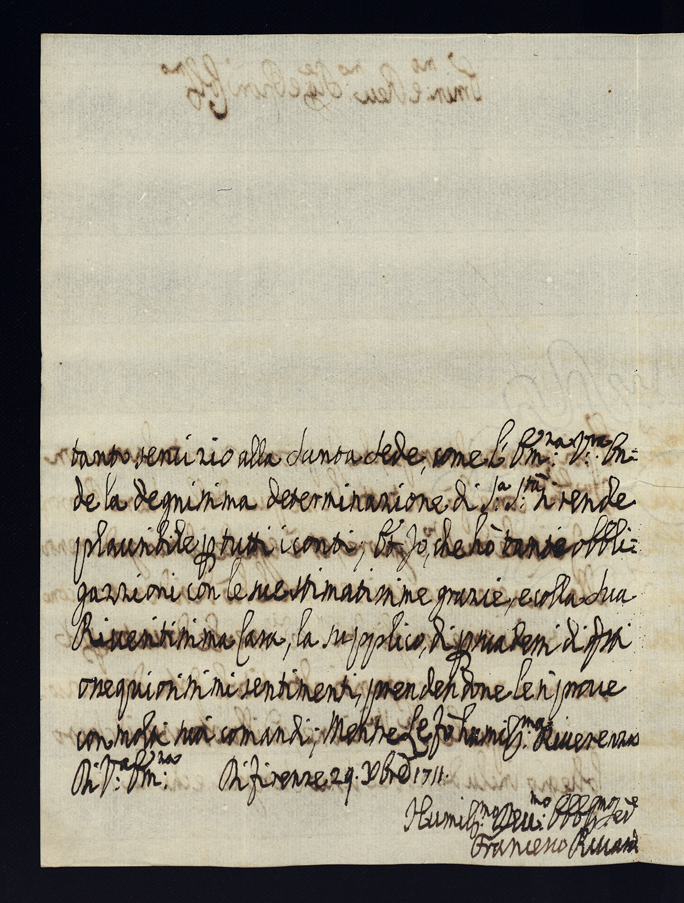 tanto servizio alla Santa Sede, come l'Em:za V:ra On=
de la degnissima determinazione di S:a S:tà si rende
plausibile p tutti i conti; Et Io, che hò tante obbli=
gazzioni con le sue stimatissime grazie, e colla Sua
Riveritissima Casa, la supplico, di p suadersi di q.sti
ossequiosissimi sentimenti, prendendone le riprove
con molti suoi comandi; Mentre Le fò humiliss:ma Riverenza
Di V:a Em:za Di firenze 29. Xbre 1711.
Humiliss:mo Dev:mo Obblig:mo
Francesco